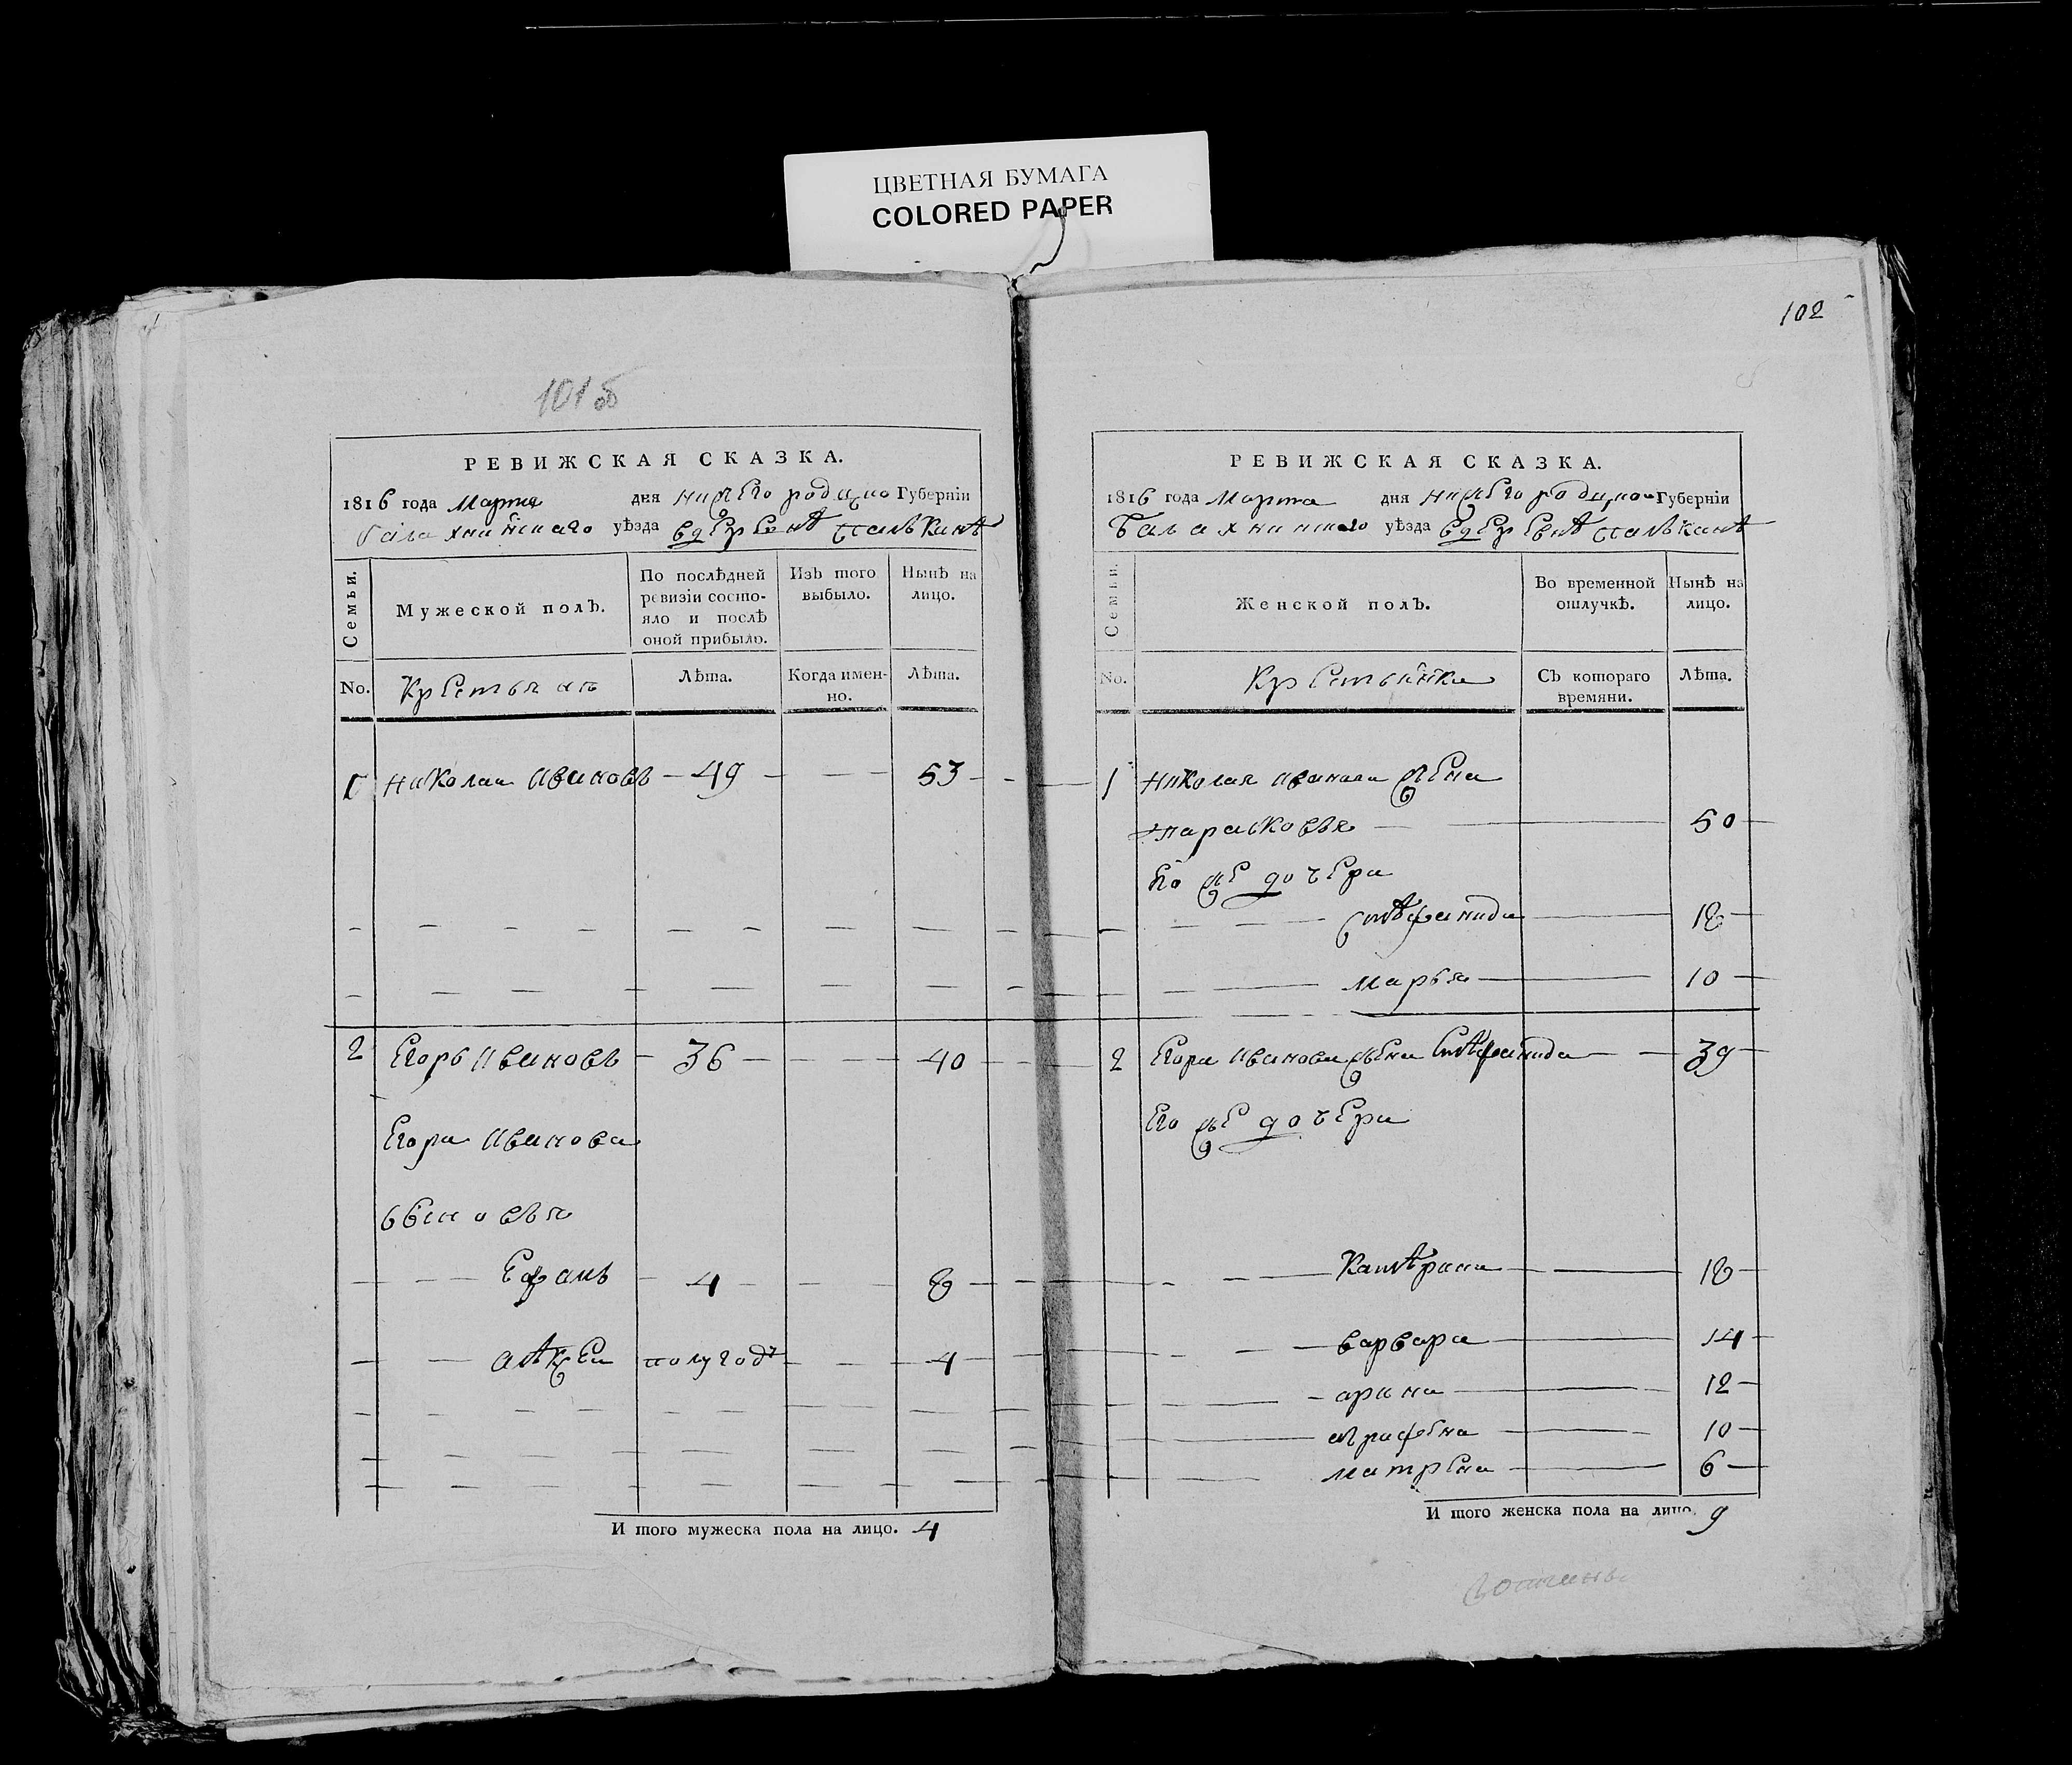 ЦВЕТНАЯ БУМАГА
COLORED PAPER
101 об
РЕВИЖСКАЯ СКАЗКА.
1816 года Марта дня нижегородцко Губерніи
балахнинскаго уѣзда вдеревнѣ
Семьи.
Мужеской полъ.
По послѣдней ревизіи состо-
яло и послѣ
оной прибыло.
Изъ того
выбыло.
Нынѣ на
лицо.
No.
Крестьянъ
Лѣта.
Когда имен-
но.
Лѣта.
1 николаи ивановъ 49 53
2 Егоръ ивановъ 36 40
Егора иванова
сыновья
Ефимъ 4 8
алѣксеи полугоду 4
И того мужеска пола на лицо. 4
102
РЕВИЖСКАЯ СКАЗКА.
1816 года Марта дня нижегородцко Губерніи
балахнинскаго уѣзда вдеревнѣ
Семьи.
Женской полъ.
Во временной
отлучкѣ.
Нынѣ на
лицо.
No.
Крестьянки
Съ котораго
времяни.
Лѣта.
1 николая иванова жена
парасковья 50
Его же дочери
стѣфанида 18
марья 10
2 Егора иванова жена Стѣфанида 39
Его же дочери
Катѣрина 18
варвара 14
арина 12
аграфена 10
матрена 6
И того женска пола на лицо. 9